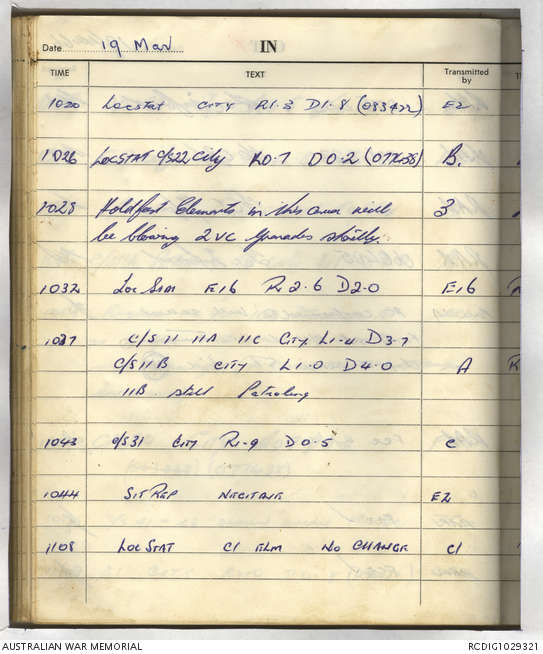 Date 19 Mar IN
TIME TEXT Transmitted by
1020 Locstat CITY R1.3 D1.8 (083422) E2
1026 LOCSTAT C/S22 City R0.7 D0.2 B.
1028 Holdfast Elements in this area will 3
be blowing 2 VC Grenades shortly.
1032 Loc Stat E16 R2.6 D2.0 E16
1037 C/S 11 11A 11C CITY L1.4 D3.7
C/S 11B CITY L1.0 D4.0 A
11B still Patroling
1043 C/S31 CITY R1.9 D0.5 C
1044 SIT REP NEGITAVE E2
1108 LOC STAT C1 ELM NO CHANGE C1
AUSTRALIAN WAR MEMORIAL RCDIG1029321